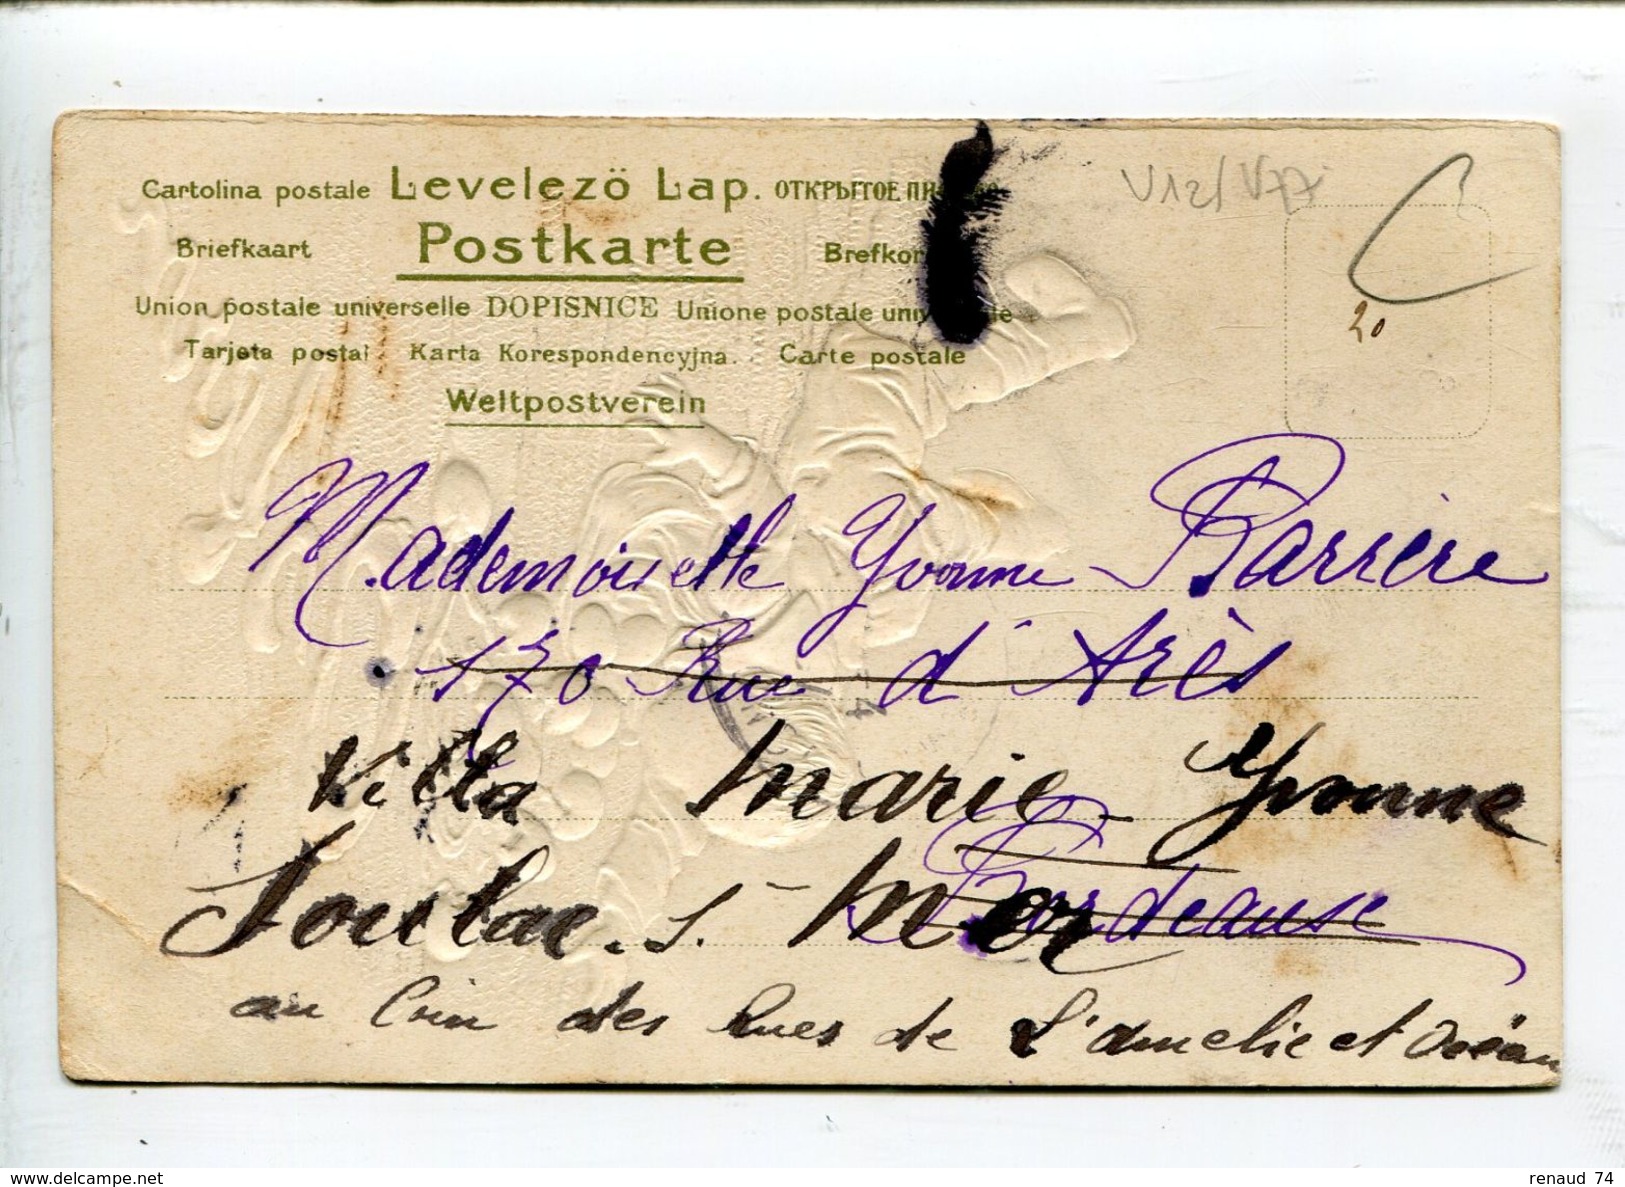 V12/V77
C
20
Cartolina postale Levelezö Lap. ОТКРЫТОЕ
Briefkaart Postkarte
Union postale universelle DOPISNICE Unione postale
Tarjeta postal Karta Korespondencyjna. Carte postale
Weltpostverein
Mademoiselle Yvonne Barrère
170 Rue d'Arès
Villa Marie-Yvonne
Bordeaux
Soulac. s. Mer
au Coin des Rues de L'amelie et Océan
renaud 74